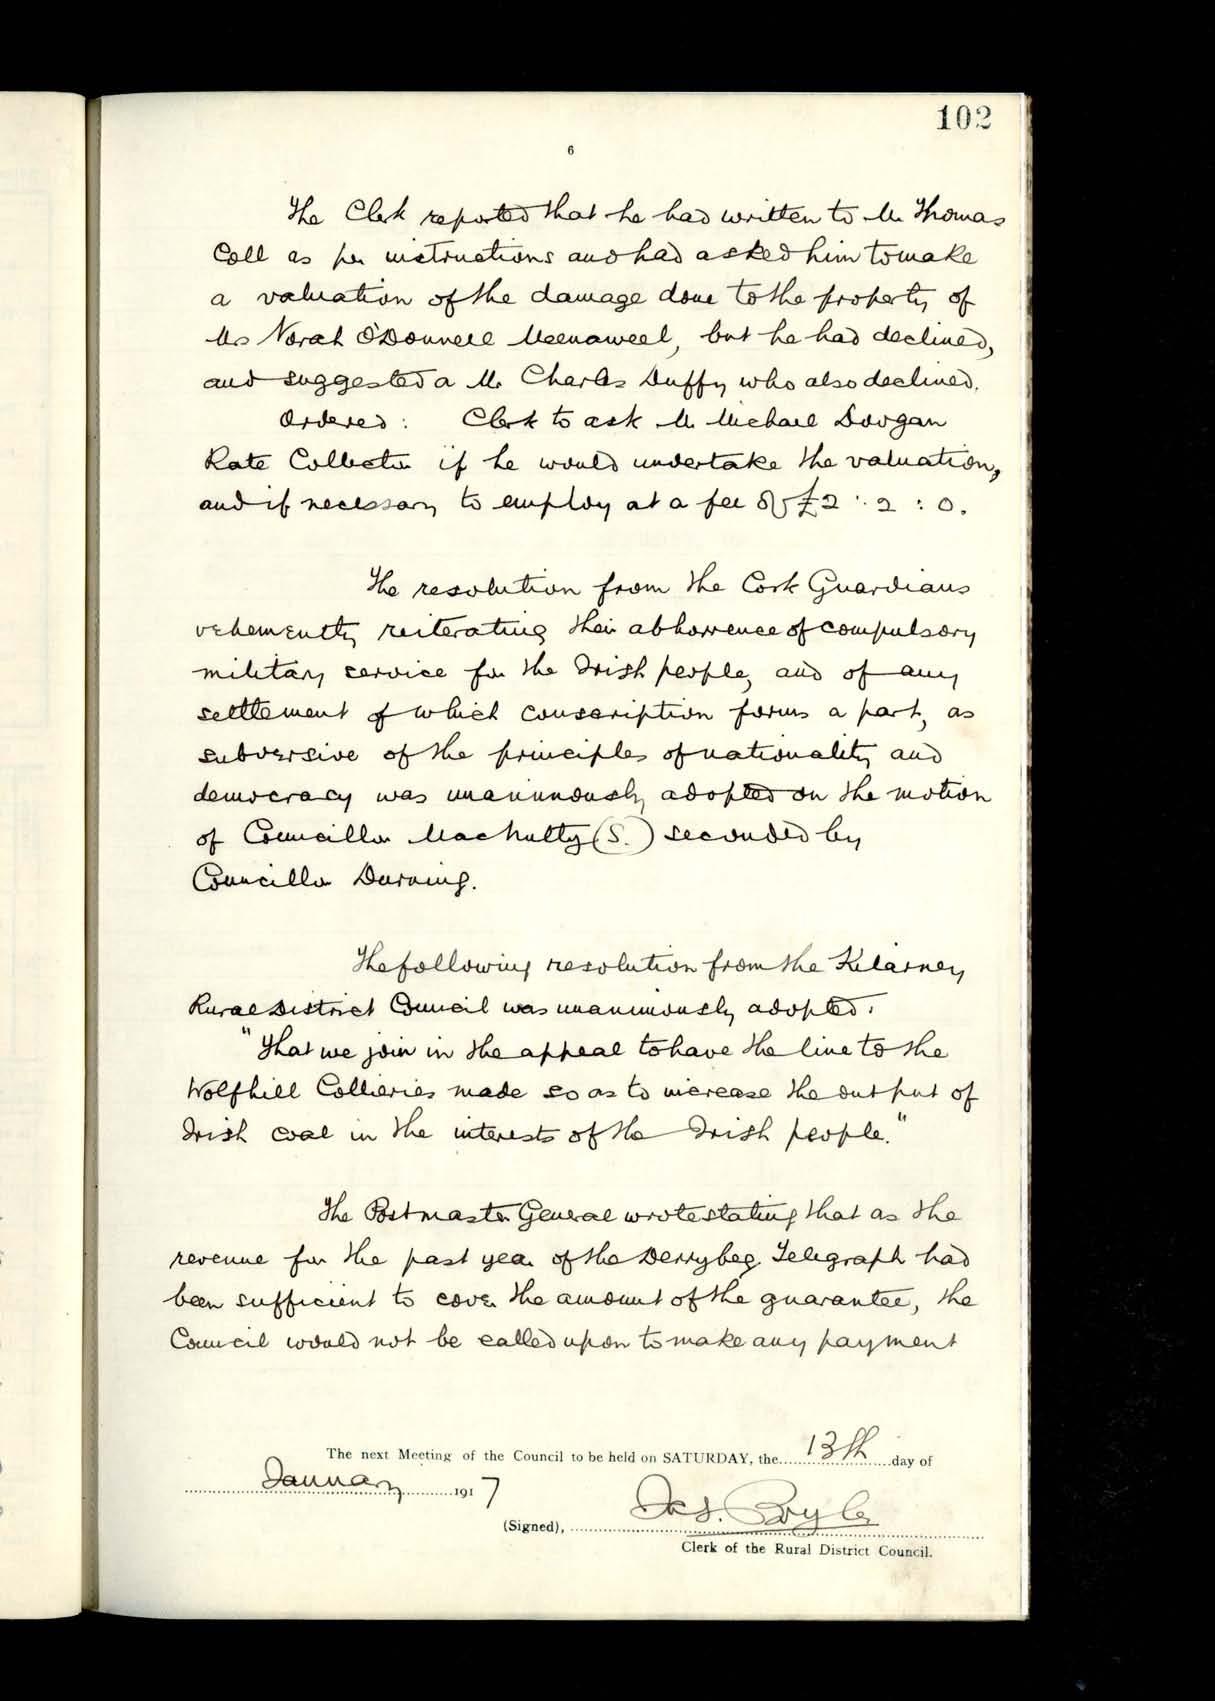 102
6
The Clerk reported that he had written to Mr Thomas
Coll as per instructions and had asked him to make
a valuation of the damage done to the property of
Mrs Norah O'Donnell Meenaweel, but he had declined,
and suggested a Mr Charles Duffy who also declined.
Ordered: Clerk to ask Mr Michael Doogan
Rate Collector if he would undertake the valuation,
and if necessary to employ at a fee of £2 : 2 : 0.
The resolution from the Cork Guardians
vehemently reiterating their abhorrence of compulsory
military service for the Irish people, and of any
settlement of which conscription forms a part, as
subversive of the principles of nationality and
democracy was unanimously adopted on the motion
of Councillor MacNulty (S.) seconded by
Councillor Durning.
The following resolution from the Kilarney
Rural District Council was unanimously adopted:
"That we join in the appeal to have the line to the
Wolfhill Collieries made so as to increase the output of
Irish coal in the interests of the Irish people."
The Postmaster General wrote stating that as the
revenue for the past year of the Derrybeg Telegraph had
been sufficient to cover the amount of the guarantee, the
Council would not be called upon to make any payment
The next Meeting of the Council to be held on SATURDAY, the 13th day of
January 1917
(Signed), Jas. Boyle
Clerk of the Rural District Council.